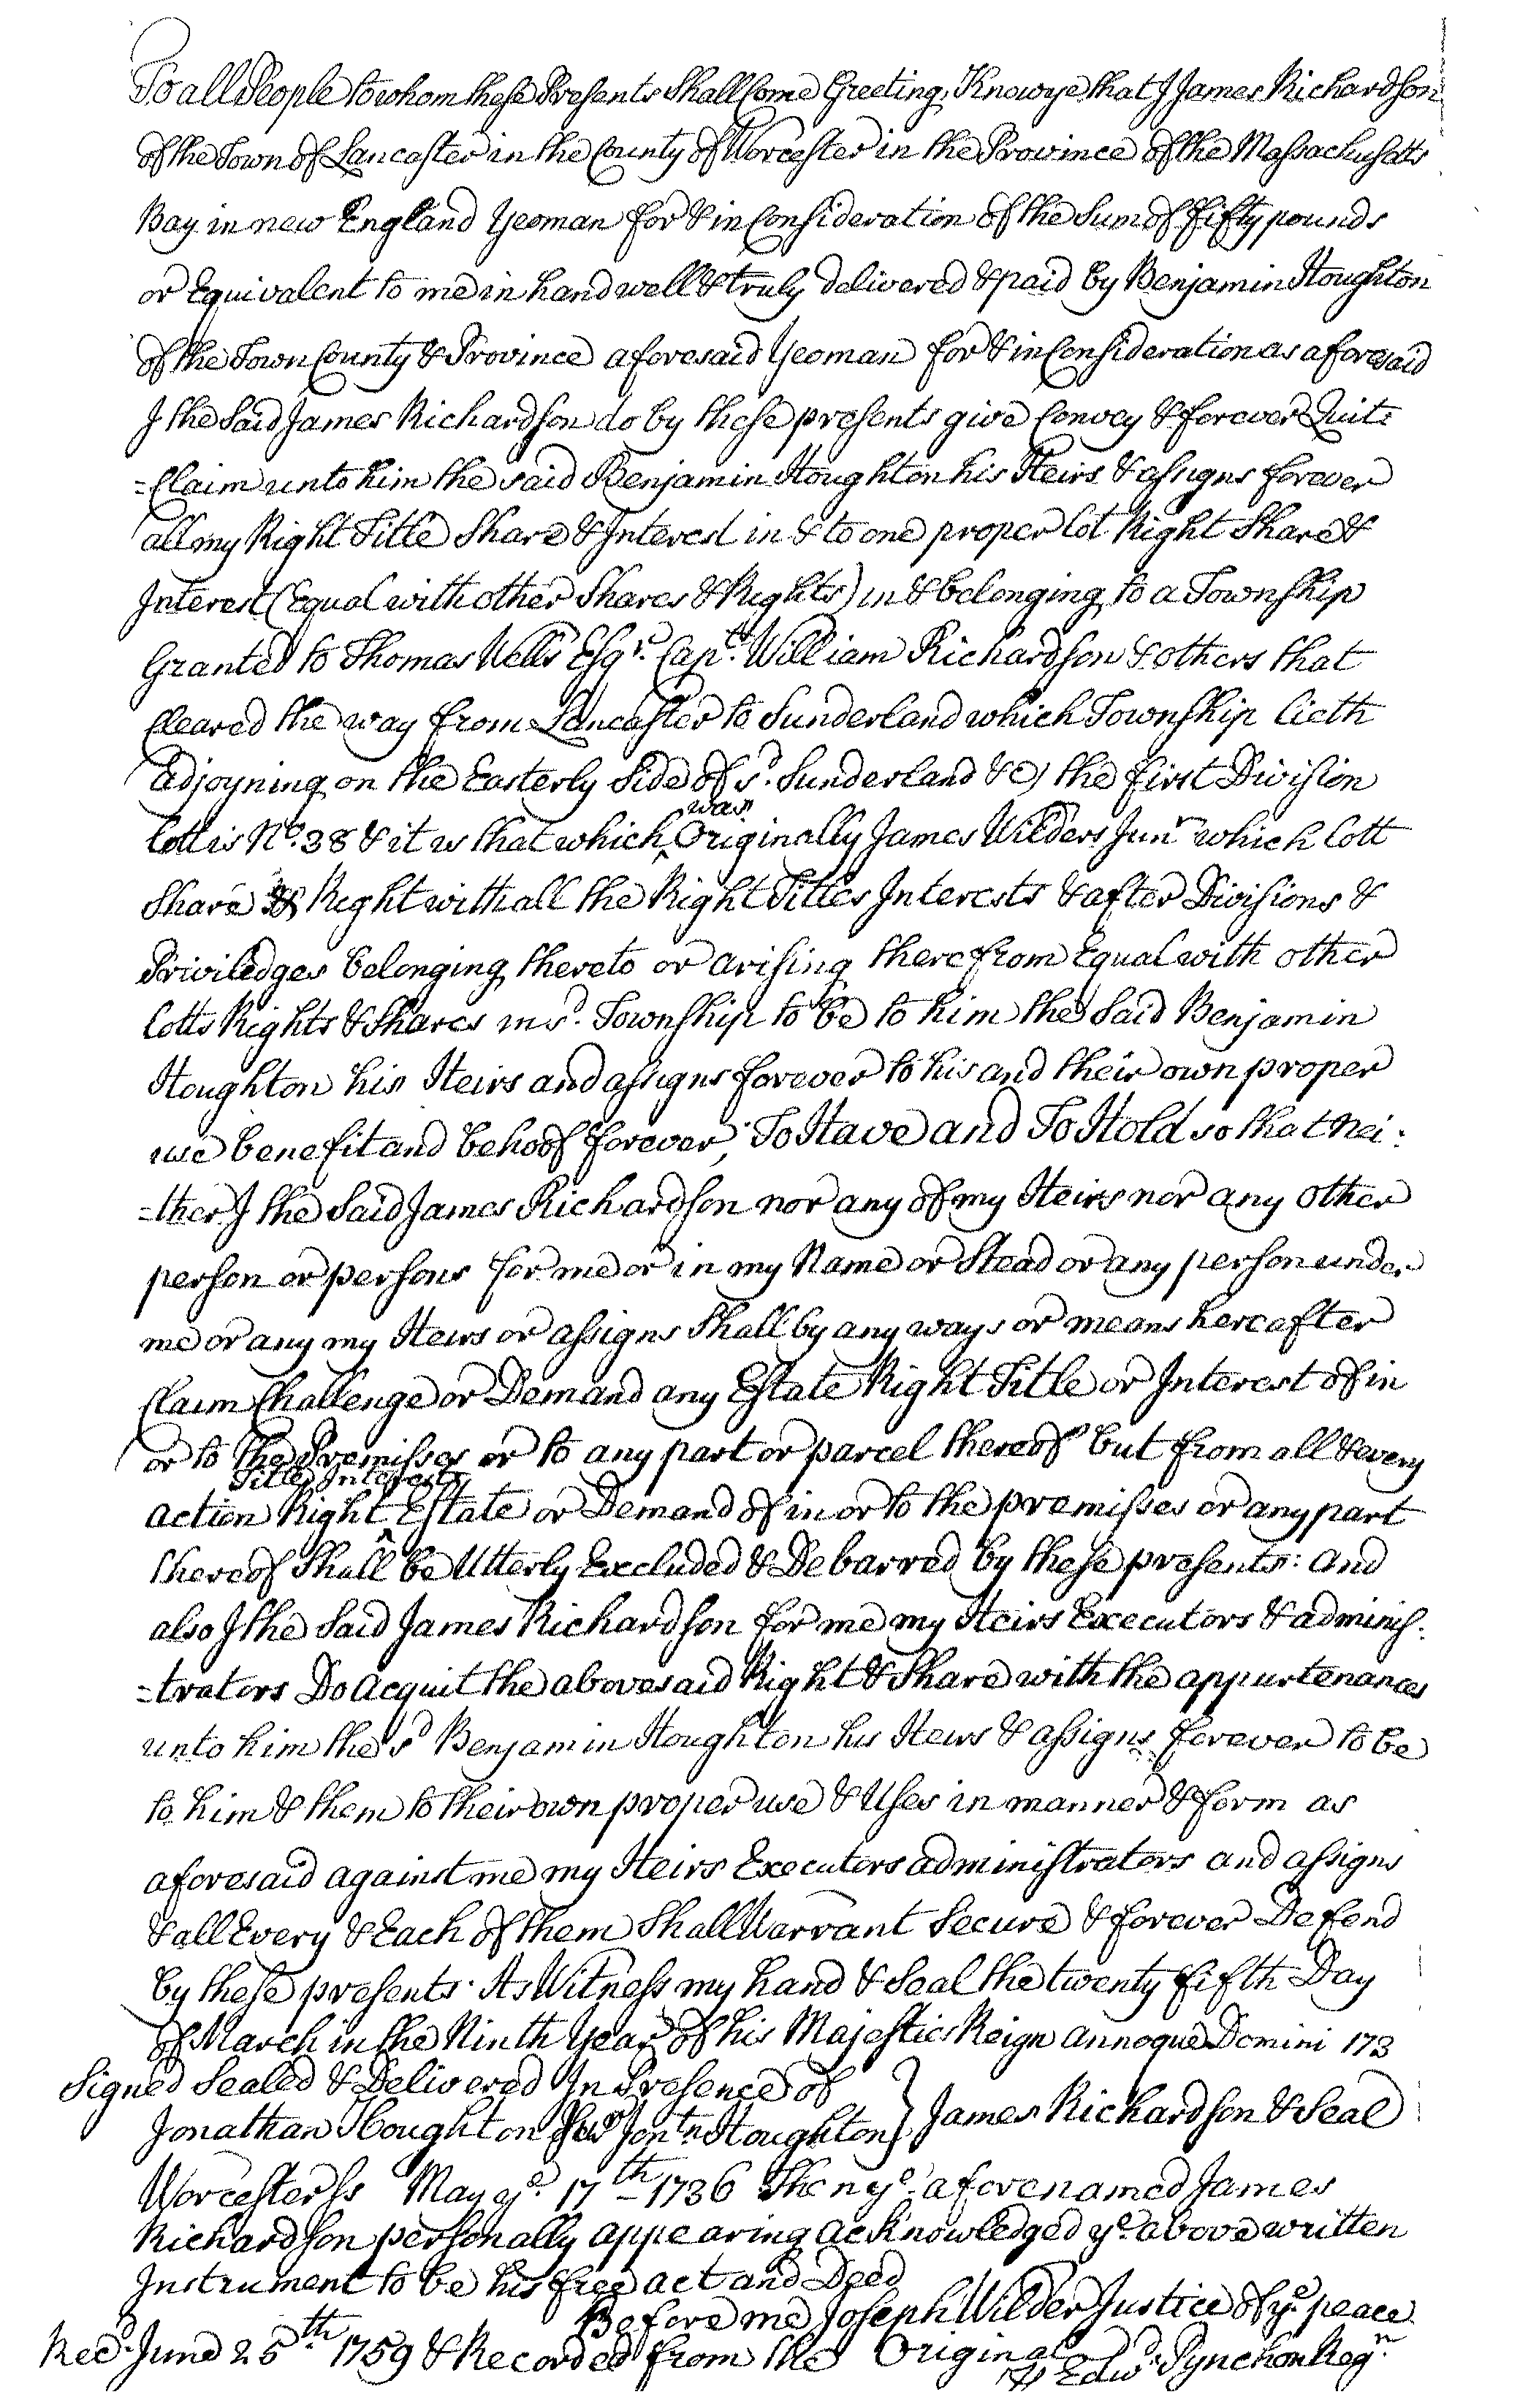 To all People to whom these Presents Shall Come Greeting, Know ye that I James Richardson
of the Town of Lancaster in the County of Worcester in the Province of the Massachusetts
Bay in new England Yeoman for & in Consideration of the Sum of fifty pounds
or Equivalent to me in hand well & truly delivered & paid by Benjamin Houghton
of the Town County & Province aforesaid Yeoman for & in Consideration as aforesaid
I the Said James Richardson do by these presents give Convey & forever Quit=
=Claim unto him the said Benjamin Houghton his Heirs & assigns forever
all my Right Title Share & Interest in & to one proper Lot Right Share &
Interest (Equal with other Shares & Rights) in & belonging to a Township
Granted to Thomas Wells Esqr. Capt. William Richardson & others that
Cleared the way from Lancaster to Sunderland which Township lieth
adjoyning on the Easterly Side of sd. Sunderland &c) the first Division
Lott is No. 38 & it is that which was Originally James Wilders Junr which Lott
Share & Right with all the Right Titles Interests & after Divisions &
Priviledges belonging thereto or arising therefrom Equal with other
Lotts Rights & Shares in sd. Township to be to him the Said Benjamin
Houghton his Heirs and assigns forever to his and their own proper
use benefit and behoof forever, To Have and To Hold so that nei:
=ther I the Said James Richardson nor any of my Heirs nor any other
person or persons for me or in my Name or Stead or any person under
me or any my Heirs or assigns Shall by any ways or means hereafter
Claim Challenge or Demand any Estate Right Title or Interest of in
or to the Premisses or to any part or parcel thereof but from all & every
action Right Title Interest Estate or Demand of in or to the premisses or any part
thereof Shall be Utterly Excluded & Debarred by these presents: and
also I the Said James Richardson for me my Heirs Executors & adminis:
=trators Do Acquit the abovesaid Right & Share with the appurtenances
unto him the sd Benjamin Houghton his Heirs & assigns forever to be
to him & them to their own proper use & Uses in manner & form as
aforesaid against me my Heirs Executors administrators and assigns
& all Every & Each of them Shall Warrant Secure & forever Defend
by these presents. As Witness my hand & Seal the twenty fifth Day
of March in the Ninth Year of his Majesties Reign annoque Domini 173
Signed Sealed & Delivered In Presence of
Jonathan Houghton Jonn. Houghton } James Richardson & Seal
Worcester Ss May ye. 17th 1736 Then ye. aforenamed James
Richardson personally appearing acknowledged ye. above written
Instrument to be his free act and Deed
Before me Joseph Wilder Justice of ye. peace
Recd. June 25th. 1759 & Recorded from the Original
Edwd. Pynchon Regr.